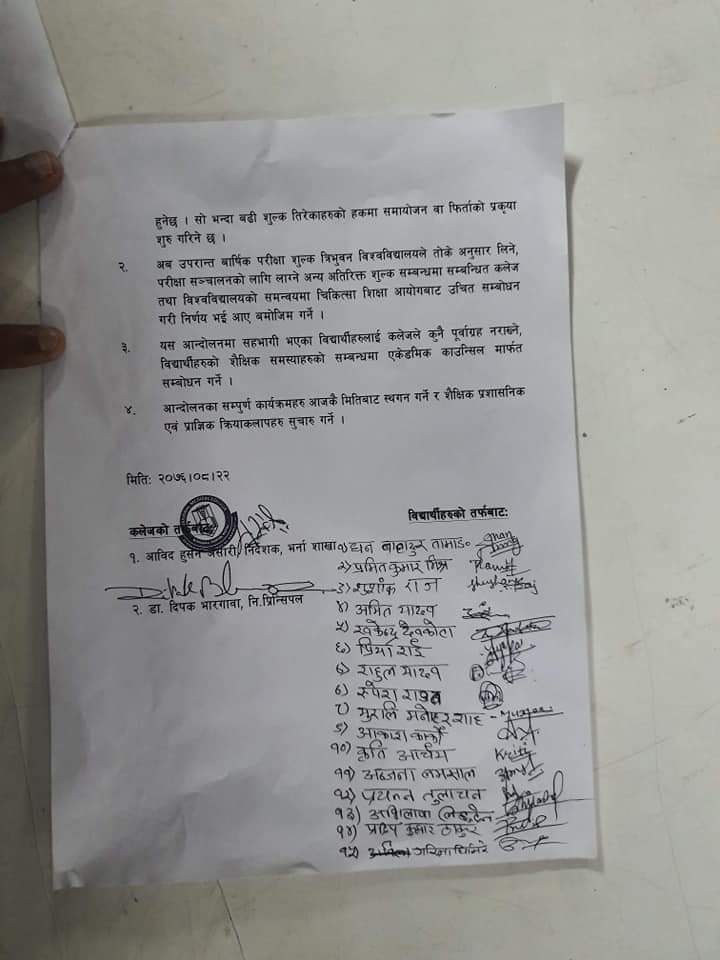 हुनेछ । सो भन्दा बढी शुल्क तिरेकाहरुको हकमा समायोजन वा फिर्ताको प्रकृया
शुरु गरिने छ ।
२. अब उपरान्त बार्षिक परीक्षा शुल्क त्रिभुवन विश्वविद्यालयले तोके अनुसार लिने,
परीक्षा सञ्चालनको लागि लाग्ने अन्य अतिरिक्त शुल्क सम्बन्धमा सम्बन्धित कलेज
तथा विश्वविद्यालयको समन्वयमा चिकित्सा शिक्षा आयोगबाट उचित सम्बोधन
गरी निर्णय भई आए बमोजिम गर्ने ।
३. यस आन्दोलनमा सहभागी भएका विद्यार्थीहरुलाई कलेजले कुनै पूर्वाग्रह नराख्ने,
विद्यार्थीहरुको शैक्षिक समस्याहरुको सम्बन्धमा एकेडमिक काउन्सिल मार्फत
सम्बोधन गर्ने ।
४. आन्दोलनका सम्पुर्ण कार्यक्रमहरु आजकै मितिबाट स्थगन गर्ने र शैक्षिक प्रशासनिक
एवं प्राज्ञिक क्रियाकलापहरु सुचारु गर्ने ।
मितिः २०७६।०८।२२
कलेजको तर्फबाटः
१. आविद हुसेन अंसारी, निर्देशक, भर्ना शाखा
२. डा. दिपक भारगावा, नि.प्रिन्सिपल
विद्यार्थीहरुको तर्फबाटः
१) धन बहादुर तामाङ
२) प्रमित कुमार मिश्र
३) शुशांक राज
४) अमित यादव
५) खकेन्द्र देवकोटा
६) प्रिया राई
राहुल यादव
रुपेश रावत
८) मुरलि मनोहर शाह
९) आकाश कार्की
१०) कृति आचार्य
११) अञ्जना
१२) प्रयत्न तुलाचन
१३) अभिलाषा
१४) प्रदिप कुमार ठाकुर
Kriti
१५) गरिमा घिमिरे